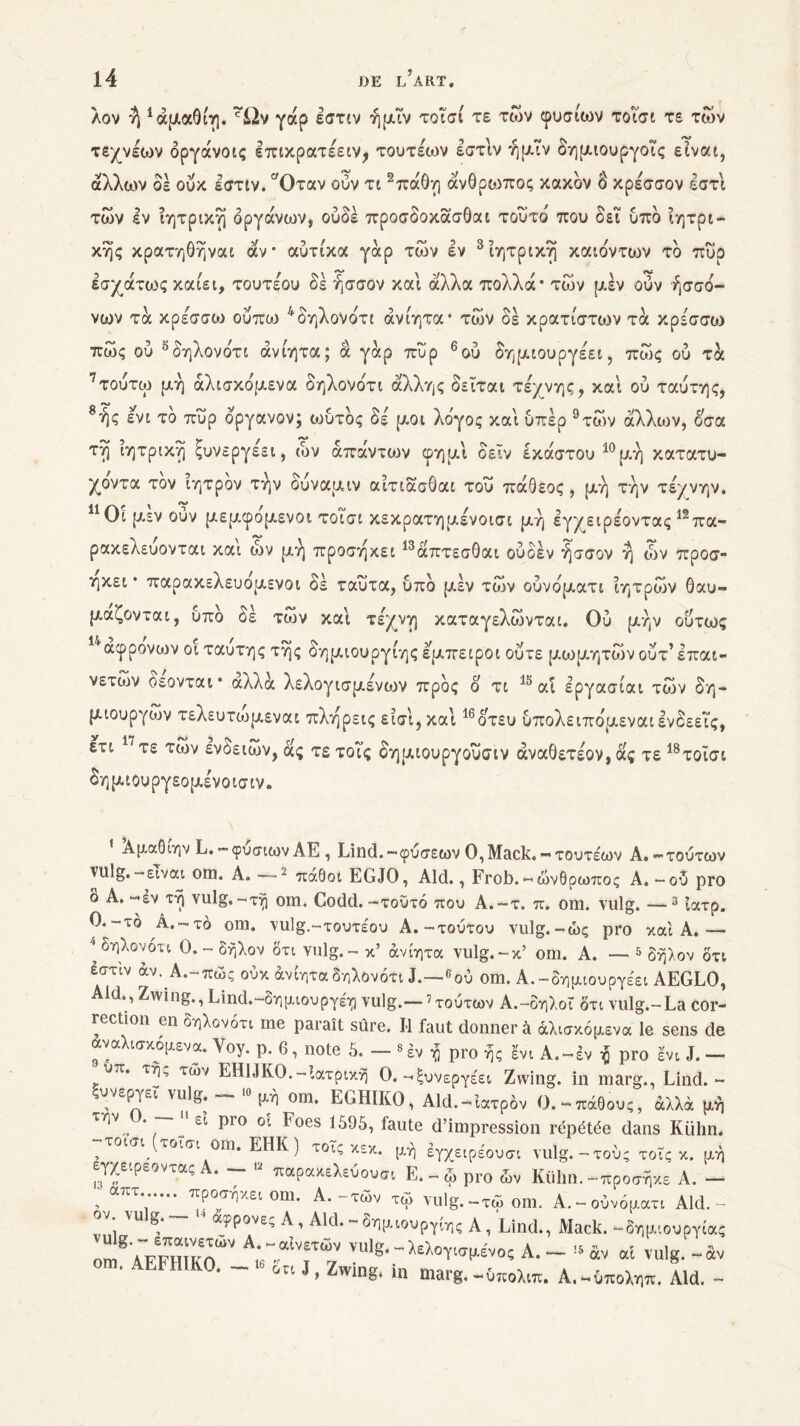 14 DE L’ART.
λον ἢ ¹ἀμαθίῃ. Ὧν γάρ ἐστιν ἡμῖν τοῖσί τε τῶν φυσίων τοῖσι τε τῶν
τεχνέων ὀργάνοις ἐπικρατέειν, τουτέων ἐστὶν ἡμῖν δημιουργοῖς εἶναι,
ἄλλων δὲ οὐκ ἔστιν. Ὅταν οὖν τι ²πάθῃ ἄνθρωπος κακὸν ὃ κρέσσον ἐστὶ
τῶν ἐν ἰητρικῇ ὀργάνων, οὐδὲ προσδοκᾶσθαι τοῦτό που δεῖ ὑπὸ ἰητρι-
κῆς κρατηθῆναι ἄν· αὐτίκα γὰρ τῶν ἐν ³ἰητρικῇ καιόντων τὸ πῦρ
ἐσχάτως καίει, τουτέου δὲ ἧσσον καὶ ἄλλα πολλά· τῶν μὲν οὖν ἡσσό-
νων τὰ κρέσσω οὔπω ⁴δηλονότι ἀνίητα· τῶν δὲ κρατίστων τὰ κρέσσω
πῶς οὐ ⁵δηλονότι ἀνίητα; ἃ γὰρ πῦρ ⁶οὐ δημιουργέει, πῶς οὐ τὰ
⁷τούτῳ μὴ ἁλισκόμενα δηλονότι ἄλλης δεῖται τέχνης, καὶ οὐ ταύτης,
⁸ἧς ἔνι τὸ πῦρ ὄργανον; ωὑτὸς δέ μοι λόγος καὶ ὑπὲρ ⁹τῶν ἄλλων, ὅσα
τῇ ἰητρικῇ ξυνεργέει, ὧν ἁπάντων φημὶ δεῖν ἑκάστου ¹⁰μὴ κατατυ-
χόντα τὸν ἰητρὸν τὴν δύναμιν αἰτιᾶσθαι τοῦ πάθεος, μὴ τὴν τέχνην.
¹¹Οἱ μὲν οὖν μεμφόμενοι τοῖσι κεκρατημένοισι μὴ ἐγχειρέοντας ¹²πα-
ρακελεύονται καὶ ὧν μὴ προσήκει ¹³ἅπτεσθαι οὐδὲν ἧσσον ἢ ὧν προσ-
ήκει· παρακελευόμενοι δὲ ταῦτα, ὑπὸ μὲν τῶν οὐνόματι ἰητρῶν θαυ-
μάζονται, ὑπὸ δὲ τῶν καὶ τέχνῃ καταγελῶνται. Οὐ μὴν οὕτως
¹⁴ἀφρόνων οἱ ταύτης τῆς δημιουργίης ἔμπειροι οὔτε μωμητῶν οὔτ’ ἐπαι-
νετῶν δέονται· ἀλλὰ λελογισμένων πρὸς ὅ τι ¹⁵αἱ ἐργασίαι τῶν δη-
μιουργῶν τελευτώμεναι πλήρεις εἰσὶ, καὶ ¹⁶ὅτευ ὑπολειπόμεναι ἐνδεεῖς,
ἔτι ¹⁷τε τῶν ἐνδειῶν, ἅς τε τοῖς δημιουργοῦσιν ἀναθετέον, ἅς τε ¹⁸τοῖσι
δημιουργεομένοισιν.
¹ Ἀμαθίην L. - φύσιων AE, Lind. - φύσεων O, Mack. - τουτέων A. - τούτων
vulg. - εἶναι om. A. — ² πάθοι EGJO, Ald., Frob. - ὤνθρωπος A. - οὗ pro
ὃ A. - ἐν τῇ vulg. - τῇ om. Codd. - τοῦτό που A. - τ. π. om. vulg. — ³ ἰατρ.
O. - τὸ A. - τὸ om. vulg. - τουτέου A. - τούτου vulg. - ὡς pro καὶ A. —
⁴ δηλονότι O. - δῆλον ὅτι vulg. - κ’ ἀνίητα vulg. - κ’ om. A. — ⁵ δῆλον ὅτι
ἐστὶν ἄν. A. - πῶς οὐκ ἀνίητα δηλονότι J. — ⁶ οὐ om. A. - δημιουργέει AEGLO,
Ald., Zwing., Lind. - δημιουργέῃ vulg. — ⁷ τούτων A. - δηλοῖ ὅτι vulg. - La cor-
rection en δηλονότι me paraît sûre. Il faut donner à ἁλισκόμενα le sens de
ἀναλισκόμενα. Voy. p. 6, note 5. — ⁸ ἐν ᾗ pro ἧς ἔνι A. - ἐν ᾗ pro ἔνι J. —
⁹ ὑπ. τῆς τῶν EHIJKO. - ἰατρικῇ O. - ξυνεργέει Zwing. in marg., Lind. -
ξυνεργεῖ vulg. — ¹⁰ μὴ om. EGHIKO, Ald. - ἰατρὸν O. - πάθους, ἀλλὰ μὴ
τὴν O. — ¹¹ εἰ pro οἱ Foes 1595, faute d’impression répétée dans Kühn.
- τοῖσι (τοῖσι om. EHK) τοῖς κεκ. μὴ ἐγχειρέουσι vulg. - τοὺς τοῖς κ. μὴ
ἐγχειρέοντας A. — ¹² παρακελεύουσι E. - ᾧ pro ὧν Kühn. - προσῆκε A. —
¹³ ἅπτ...... προσήκει om. A. - τῶν τῷ vulg. - τῷ om. A. - οὐνόματι Ald. -
ὀν. vulg. — ¹⁴ ἄφρονες A, Ald. - δημιουργίης A, Lind., Mack. - δημιουργίας
vulg. - ἐπαινετῶν A. - αἰνετῶν vulg. - λελογισμένος A. — ¹⁵ ἂν αἱ vulg. - ἂν
om. AEFHIKO. — ¹⁶ ὅτι J, Zwing. in marg. - ὑπολιπ. A. - ὑποληπ. Ald. -